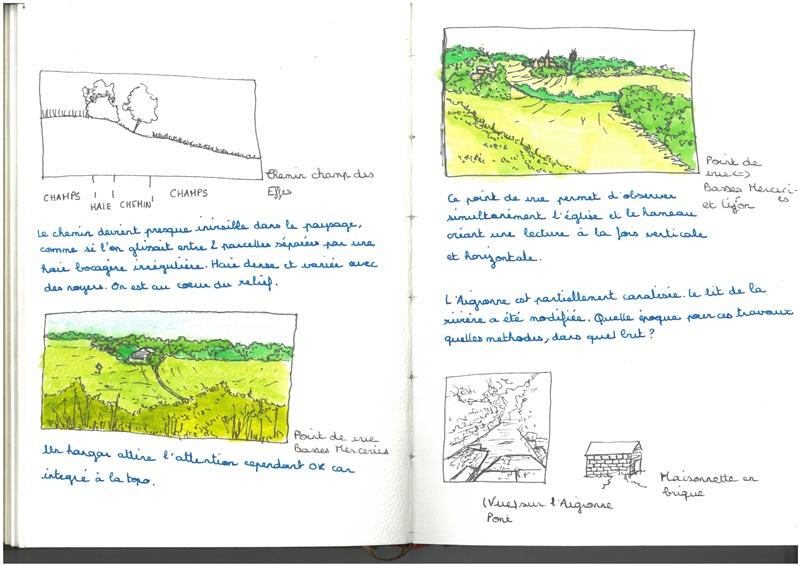 Chemin champ des
Effes
CHAMPS HAIE CHEMIN CHAMPS
Le chemin devient presque invisible dans le paysage,
comme si l'on glissait entre 2 parcelles séparées par une
haie bocagère irrégulière. Haie dense et variée avec
des noyers. On est au coeur du relief.
Point de vue
Basses Merceries
Un hangar attire l'attention cependant OK car
intégré à la topo.
Point de
vue <=>
Basses Merceri-
es
et Ligon
Ce point de vue permet d'observer
simultanément l'église et le hameau
créant une lecture à la fois verticale
et horizontale.
L'Aigronne est partiellement canalisée. Le lit de la
rivière a été modifiée. Quelle époque pour ces travaux
quelles methodes, dans quel but ?
(Vue) sur l'Aigronne
Pont
Maisonnette en
brique